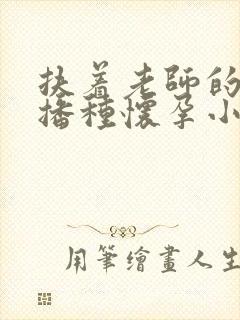 扶着老師的
播種懷孕小
用筆繪畫人生